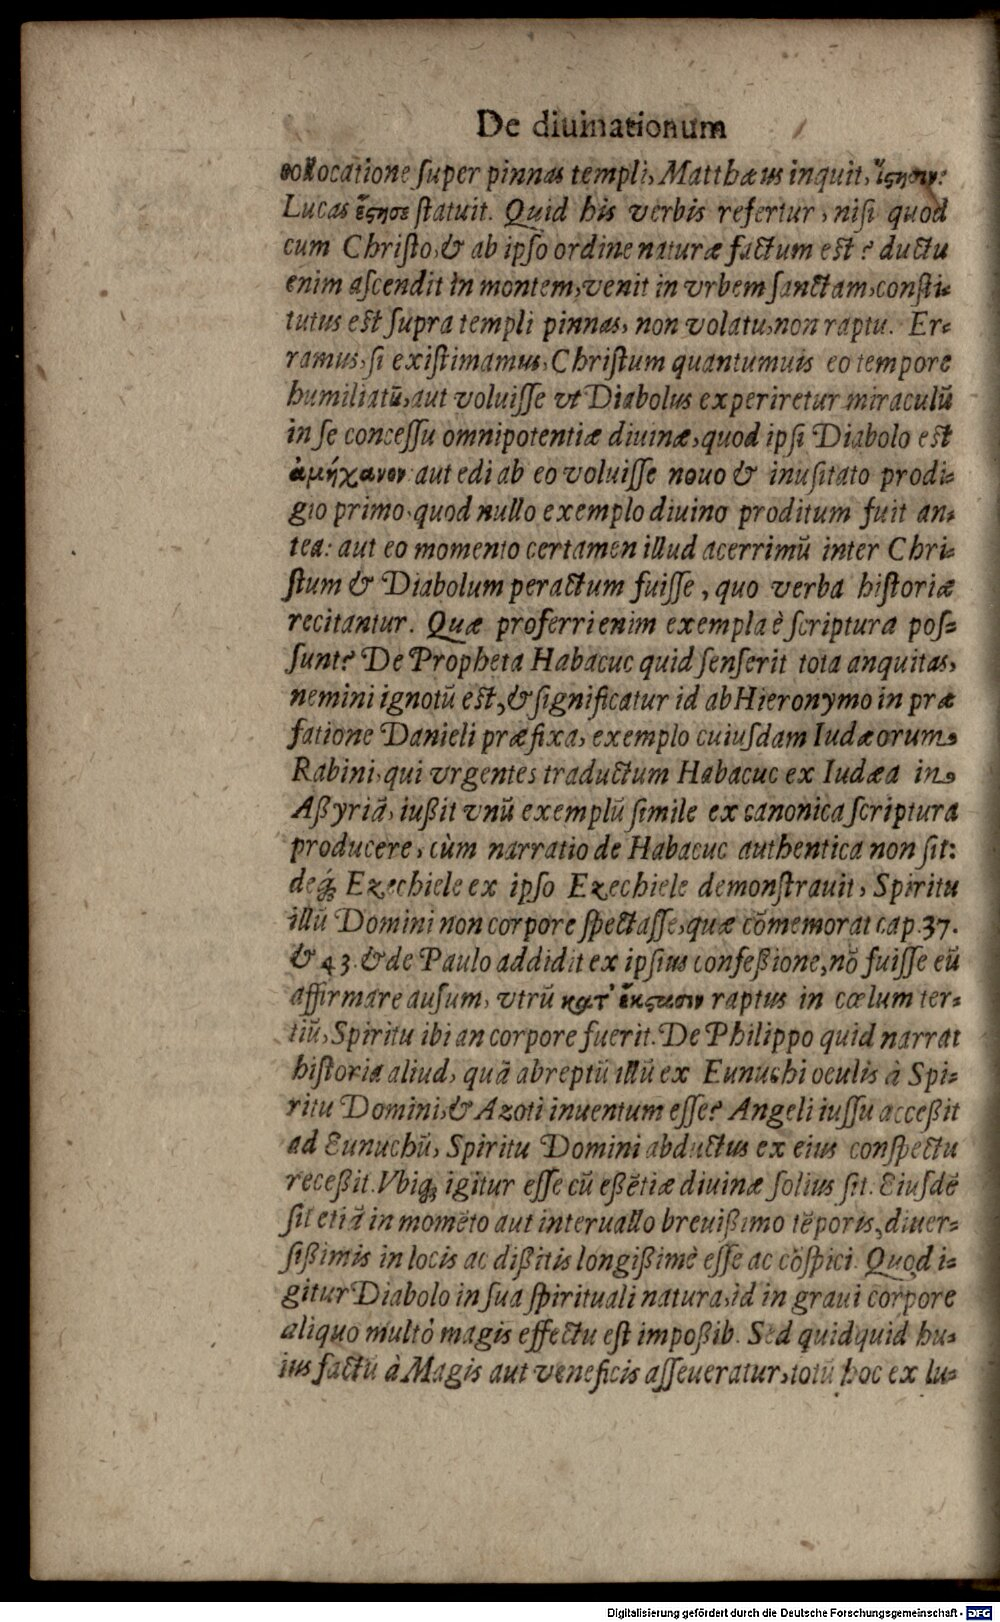 De diuinationum
collocatione ſuper pinnas templi, Matthæus inquit, ἵϛησιν:
Lucas ἔϛησε ſtatuit. Quid his verbis refertur, niſi quod
cum Chriſto, & ab ipſo ordine naturæ factum eſt? ductu
enim aſcendit in montem, venit in vrbem ſanctam, conſti-
tutus eſt ſupra templi pinnas, non volatu, non raptu. Er-
ramus, ſi exiſtimamus, Chriſtum quantumuis eo tempore
humiliatū, aut voluiſſe vt Diabolus experiretur miraculū
in ſe conceſſu omnipotentiæ diuinæ, quod ipſi Diabolo eſt
ἀμήχανον aut edi ab eo voluiſſe nouo & inuſitato prodi-
gio primo, quod nullo exemplo diuino proditum fuit an-
tea: aut eo momento certamen illud acerrimū inter Chri-
ſtum & Diabolum peractum fuiſſe, quo verba hiſtoriæ
recitantur. Quæ proferri enim exempla è ſcriptura poſ-
ſunt? De Propheta Habacuc quid ſenſerit tota anquitas,
nemini ignotū eſt, & ſignificatur id ab Hieronymo in præ
fatione Danieli præfixa, exemplo cuiuſdam Iudæorum
Rabini, qui vrgentes traductum Habacuc ex Iudæa in
Aßyriā, iußit vnū exemplū ſimile ex canonica ſcriptura
producere, cùm narratio de Habacuc authentica non ſit:
deq́; Ezechiele ex ipſo Ezechiele demonſtrauit, Spiritu
illū Domini non corpore ſpectaſſe, quæ cōmemorat cap. 37.
& 43. & de Paulo addidit ex ipſius confeßione, nō fuiſſe eū
affirmare auſum, vtrū κατ' ἔκϛασιν raptus in cœlum ter-
tiū, Spiritu ibi an corpore fuerit. De Philippo quid narrat
hiſtoria aliud, quā abreptū illū ex Eunuchi oculis à Spi-
ritu Domini, & Azoti inuentum eſſe? Angeli iuſſu acceßit
ad Eunuchū, Spiritu Domini abductus ex eius conſpectu
receßit. Vbiq; igitur eſſe cū eßētiæ diuinæ ſolius ſit. Eiuſdē
ſit etiā in momēto aut interuallo breuißimo tēporis, diuer-
ſißimis in locis ac dißitis longißimè eſſe ac cōſpici. Quod i-
gitur Diabolo in ſua ſpirituali natura, id in graui corpore
aliquo multò magis effectu eſt impoßib. Sed quidquid hu-
ius factū à Magis aut veneficis aſſeueratur, totū hoc ex lu-
Digitalisierung gefördert durch die Deutsche Forschungsgemeinschaft - DFG